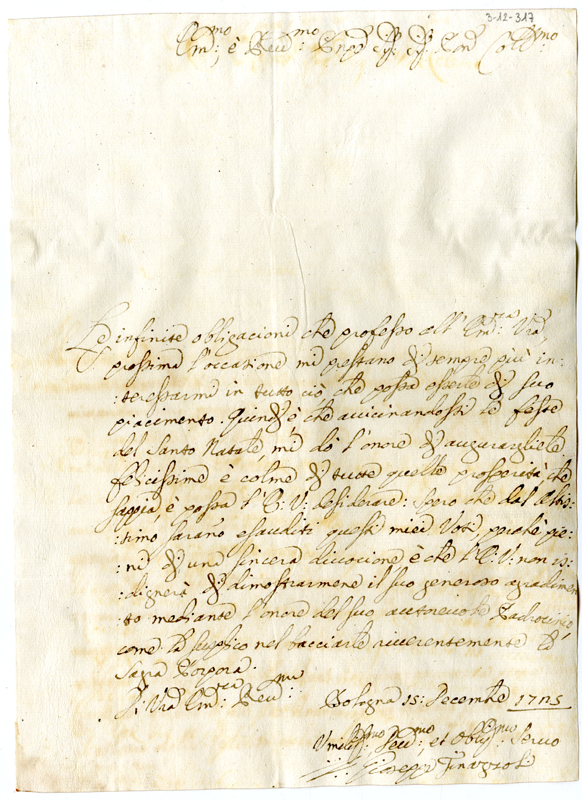 3-12-317
Em:mo, è Reu:mo Sig:
Le infinite obligazioni che professo all' Em:za V:ra,
prossime l'occasione mi prestano di sempre più in-
:teressarmi in tutto ciò che possa essere di suo
piacimento. Quindi è, che auicinandosi le feste
del Santo Natale, mi dò l'onore di augurargliele
felicissime è colme di tutte quelle prosperità che
sappia, è possa l'E: V: desiderare: Spero che dal Altis-
:simo sarano esauditi questi miei Voti, perchè pie-
:ni di una sincera diuozione è che l'E: V: non is-
:dignerà di dimostrarmene il suo generoso agradimen
:to mediante l'onore del suo autoreuole Padrocinio,
come la supplico nel bacciarle riuerentemente la
Sagra Porpora.
Di V:ra Em:za Reu:ma
Bologna 15: Decembre 1725
Vmiliss:mo Deu:mo et Oblig:mo Seruo
Giuseppe